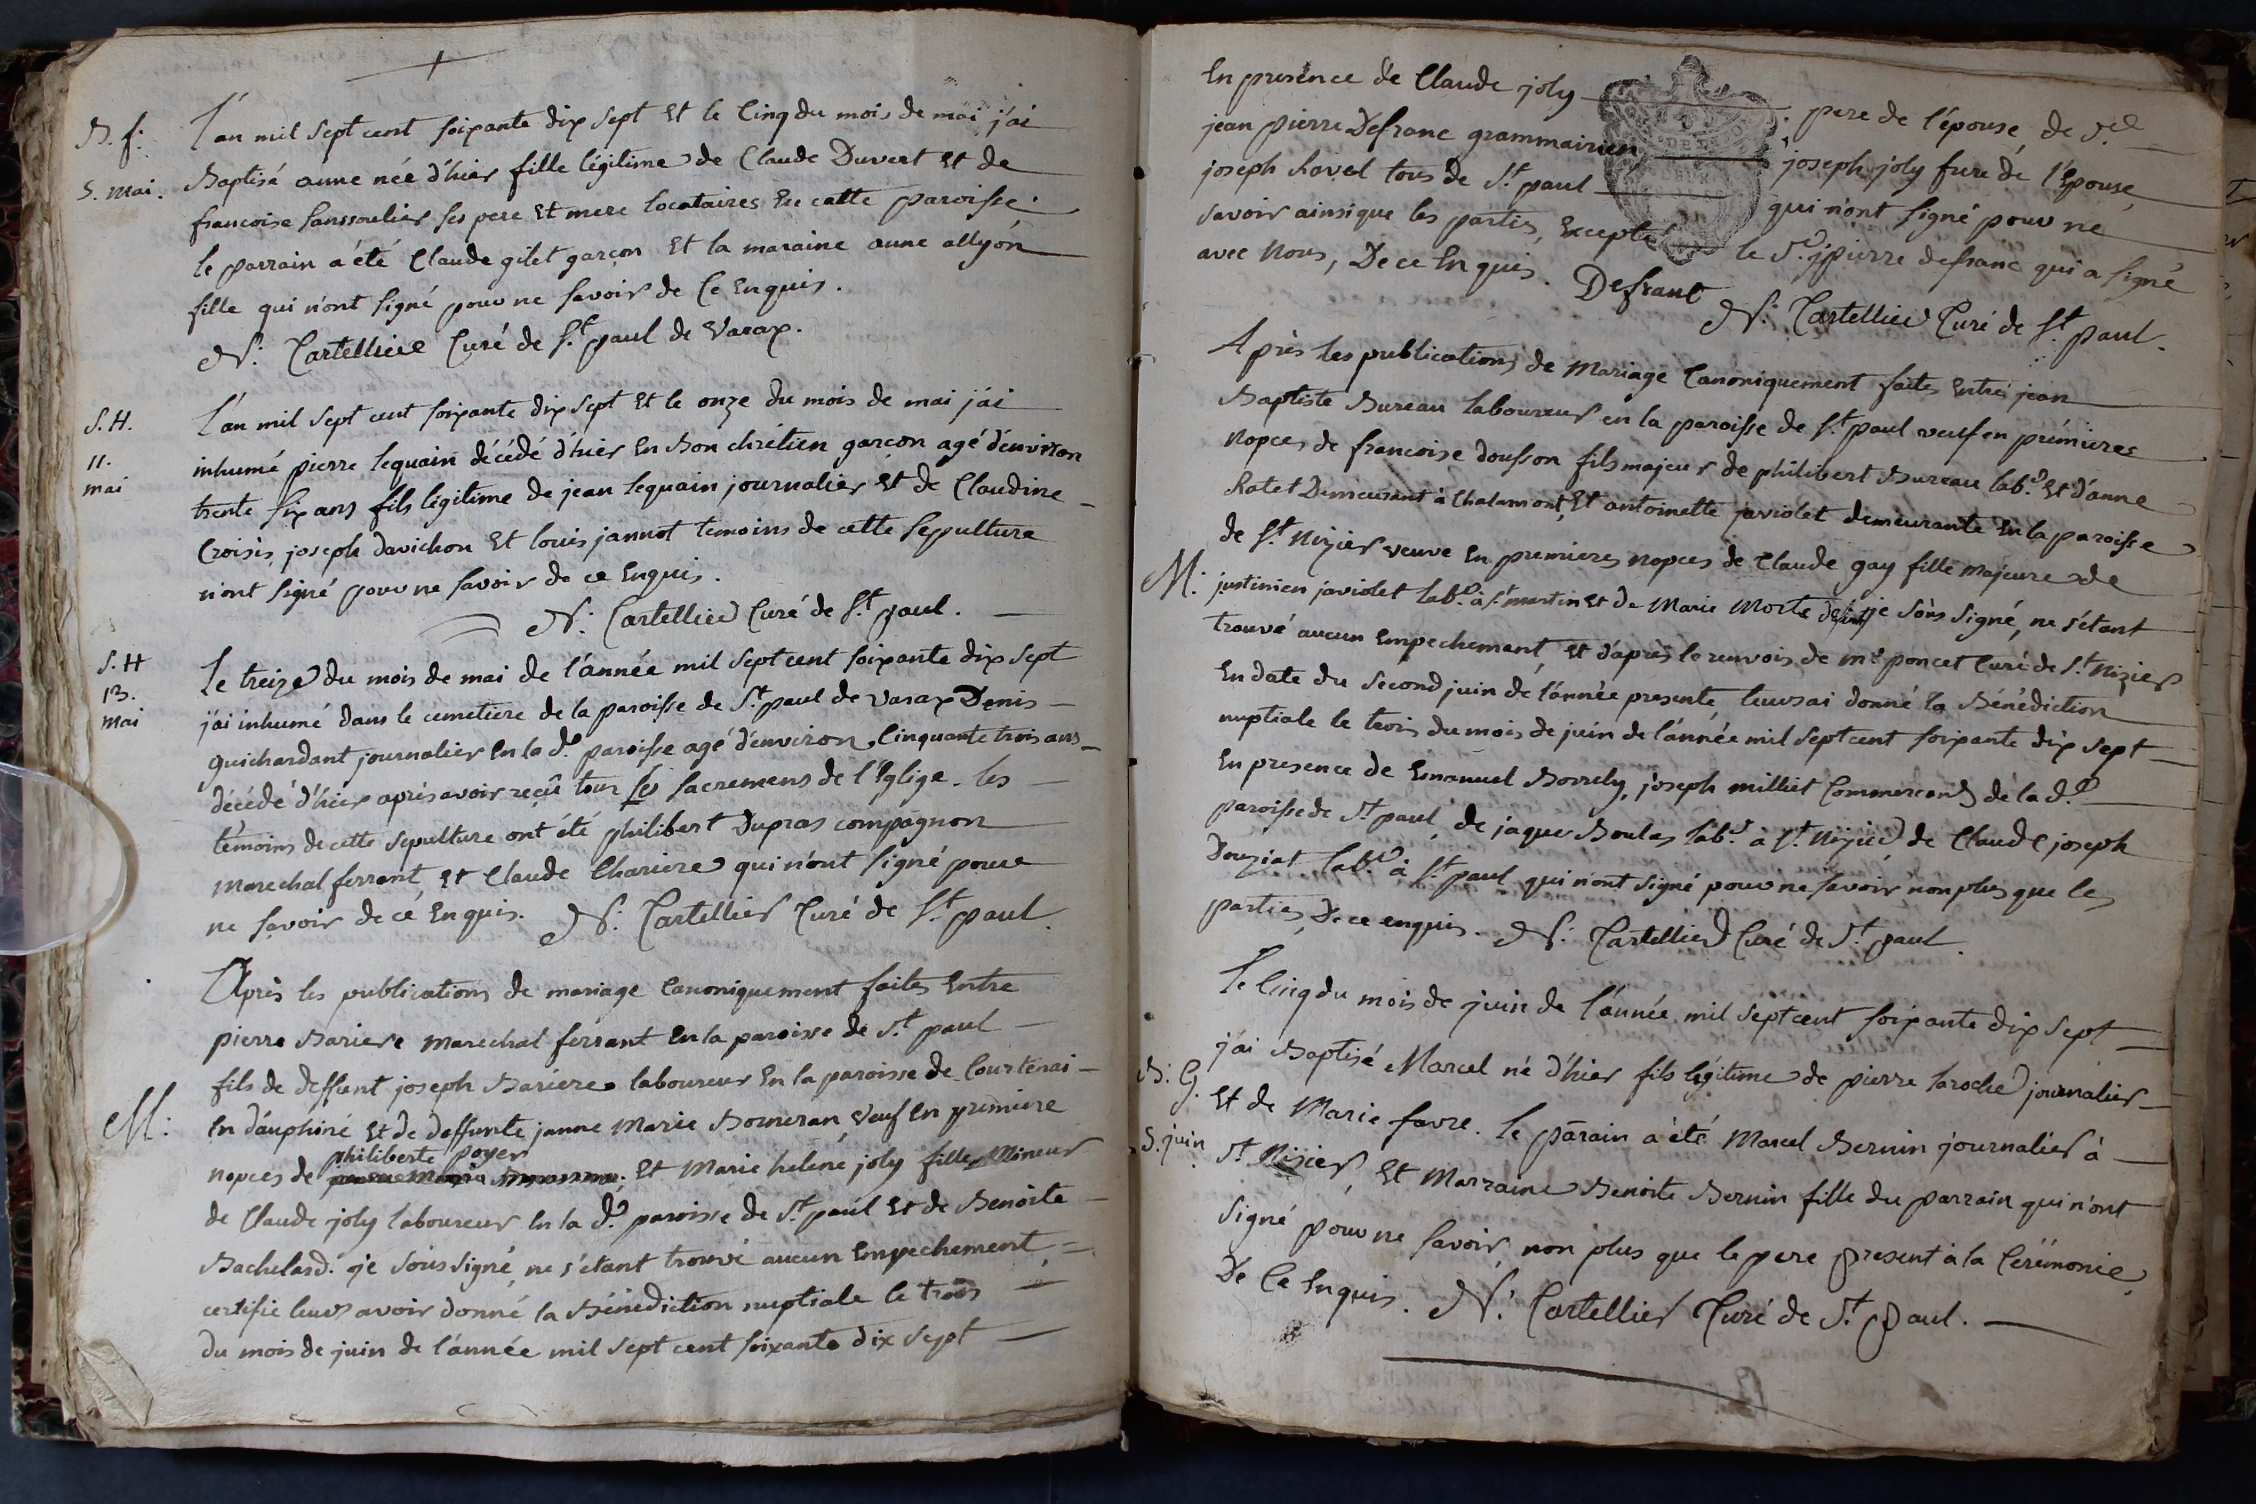 B. f.
5. mai.
L'an mil sept cent soixante dix sept Et le Cinq du mois de mai j'ai
Baptisé anne née d'hier fille légitime de Claude Duvert Et de
francoise sanssoulier ses pere Et mere locataires En cette paroisse.
le parrain a été Claude gilet garçon Et la maraine anne allyon
fille qui n'ont signé pour ne savoir de Ce Enquis.
N: Cartellier Curé de St. paul de Varax.
S. H.
11.
mai
L'an mil sept cent soixante dix sept Et le onze du mois de mai j'ai
inhumé pierre lequain décédé d'hier En Bon chrétien garçon agé d'environ
trente six ans fils légitime de jean lequain journalier Et de Claudine
Croisis, joseph davichon Et louis jannot temoins de cette sepulture
n'ont signé pour ne savoir de ce Enquis.
N: Cartellier Curé de St. paul.
S. H
13.
mai
Le treize du mois de mai de l'année mil sept cent soixante dix sept
j'ai inhumé dans le cemetiere de la paroisse de St. paul de varax Denis
guichardant journalier En la de. paroisse agé d'environ Cinquante trois ans
décédé d'hier après avoir reçû tous les sacremens de l'Eglise. les
témoins de cette sepulture ont été philibert Dupras compagnon
marechal ferrant, Et Claude Chariere qui n'ont signé pour
ne savoir de ce Enquis. N: Cartellier Curé de St. paul.
M:
Après les publications de mariage Canoniquement faites Entre
pierre Bariere marechal ferrant En la paroisse de St. paul
fils de deffunt joseph Bariere laboureur En la paroisse de Courtenai
En dauphiné Et de deffunte janne Marie Borneran, veuf En premiere
philiberte poyer
nopces de Et Marie helene joly fille Mineur
de Claude joly laboureur En la de. paroisse de St. paul Et de Benoite
Bachelard. je soussigné, ne s'étant trouvé aucun Empechement,
certifie leur avoir donné la Bénédiction nuptiale le trois
du mois de juin de l'année mil sept cent soixante dix sept
En presence de Claude joly pere de l'épouse, de
jean pierre Defranc grammairien, joseph joly frere de l'Epouse,
joseph Rovel tous de St. paul qui n'ont signé pour ne
savoir ainsi que les parties, Excepté le Sr. jpierre defranc qui a signé
avec Nous, De ce Enquis. Defranc
N: Cartellier Curé de St. paul.
M:
Après les publications de Mariage Canoniquement faites Entre jean
Baptiste Bureau laboureur en la paroisse de St. paul veuf en premieres
nopces de francoise dousson fils majeur de philibert Bureau labr. Et d'anne
Ratet Demeurant à Chalamont, Et antoinette javiolet demeurante En la paroisse
de St. Nizier veuve En premieres nopces de Claude gay fille majeure de
justinien javiolet labr. à St. martin Et de Marie Morte je soussigné, ne s'étant
trouvé aucun Empechement, Et d'après le renvois de mre. poncet Curé de St. Nizier
En date du Second juin de l'année presente, leurs ai donné la Bénédiction
nuptiale le trois du mois de juin de l'année mil sept cent soixante dix sept
En presence de Emanuel Borrely, joseph milliet Commercants de la de.
paroisse de St. paul, de jaque Boulas labr. à St. Nizier, de Claude joseph
Douziat labr. à St. paul qui n'ont signé pour ne savoir, non plus que les
parties, De ce enquis. N: Cartellier Curé de St. paul.
B: G.
5. juin
Le Cinq du mois de juin de l'année mil sept cent soixante dix sept
j'ai Baptisé Marcel né d'hier fils légitime de pierre laroche journalier
Et de Marie favre. le parain a été Marcel Bernin journalier à
St. Nizier, Et Marraine Benoite Bernin fille du parrain qui n'ont
Signé pour ne savoir, non plus que le pere present à la Cérémonie,
De Ce Enquis. N: Cartellier Curé de St. paul.